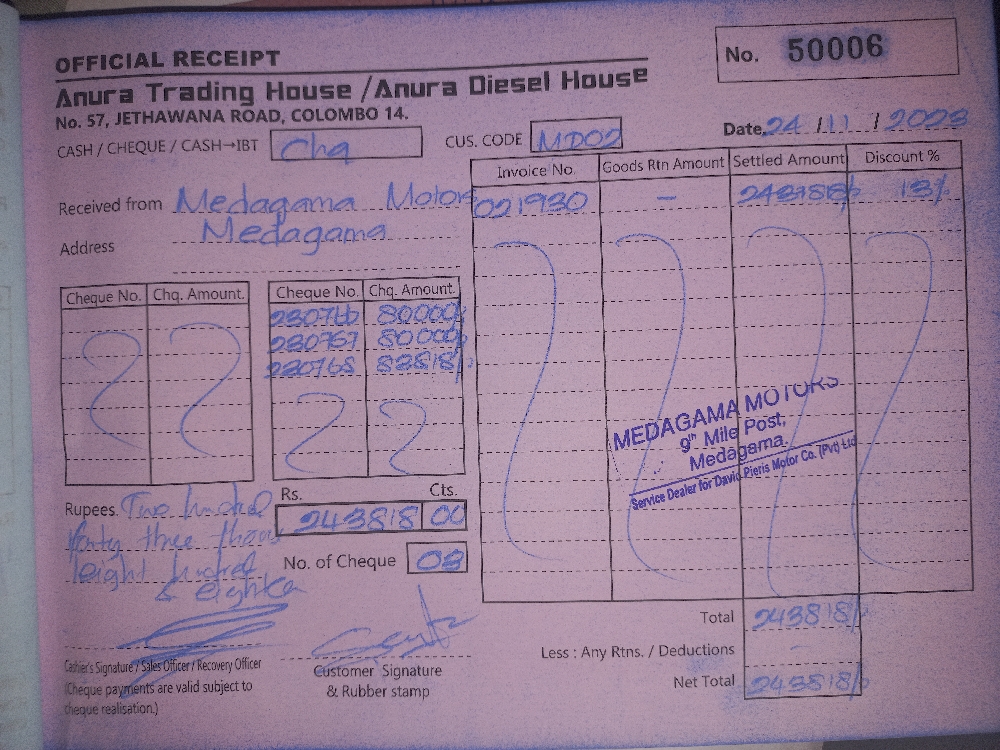 OFFICIAL RECEIPT
No. 50006
Anura Trading House / Anura Diesel House
No. 57, JETHAWANA ROAD, COLOMBO 14.
Date. 24 / 11 / 2023
CASH / CHEQUE / CASH→IBT Chq
CUS. CODE MD02
Invoice No. Goods Rtn Amount Settled Amount Discount %
021930 – 243818/- 13%
Received from Medagama Motors
Address Medagama
Cheque No. Chq. Amount.
Cheque No. Chq. Amount.
230766 80000/-
230767 80000/-
230768 83818/-
MEDAGAMA MOTORS
9th Mile Post,
Medagama.
Service Dealer for David Pieris Motor Co. (Pvt) Ltd
Rupees. Two hundred
forty three thous
eight hundred
& eighteen
Rs. Cts.
243818 00
No. of Cheque 03
Total 243818/-
Less : Any Rtns. / Deductions –
Net Total 243818/-
Cashier's Signature / Sales Officer / Recovery Officer
(Cheque payments are valid subject to
cheque realisation.)
Customer Signature
& Rubber stamp